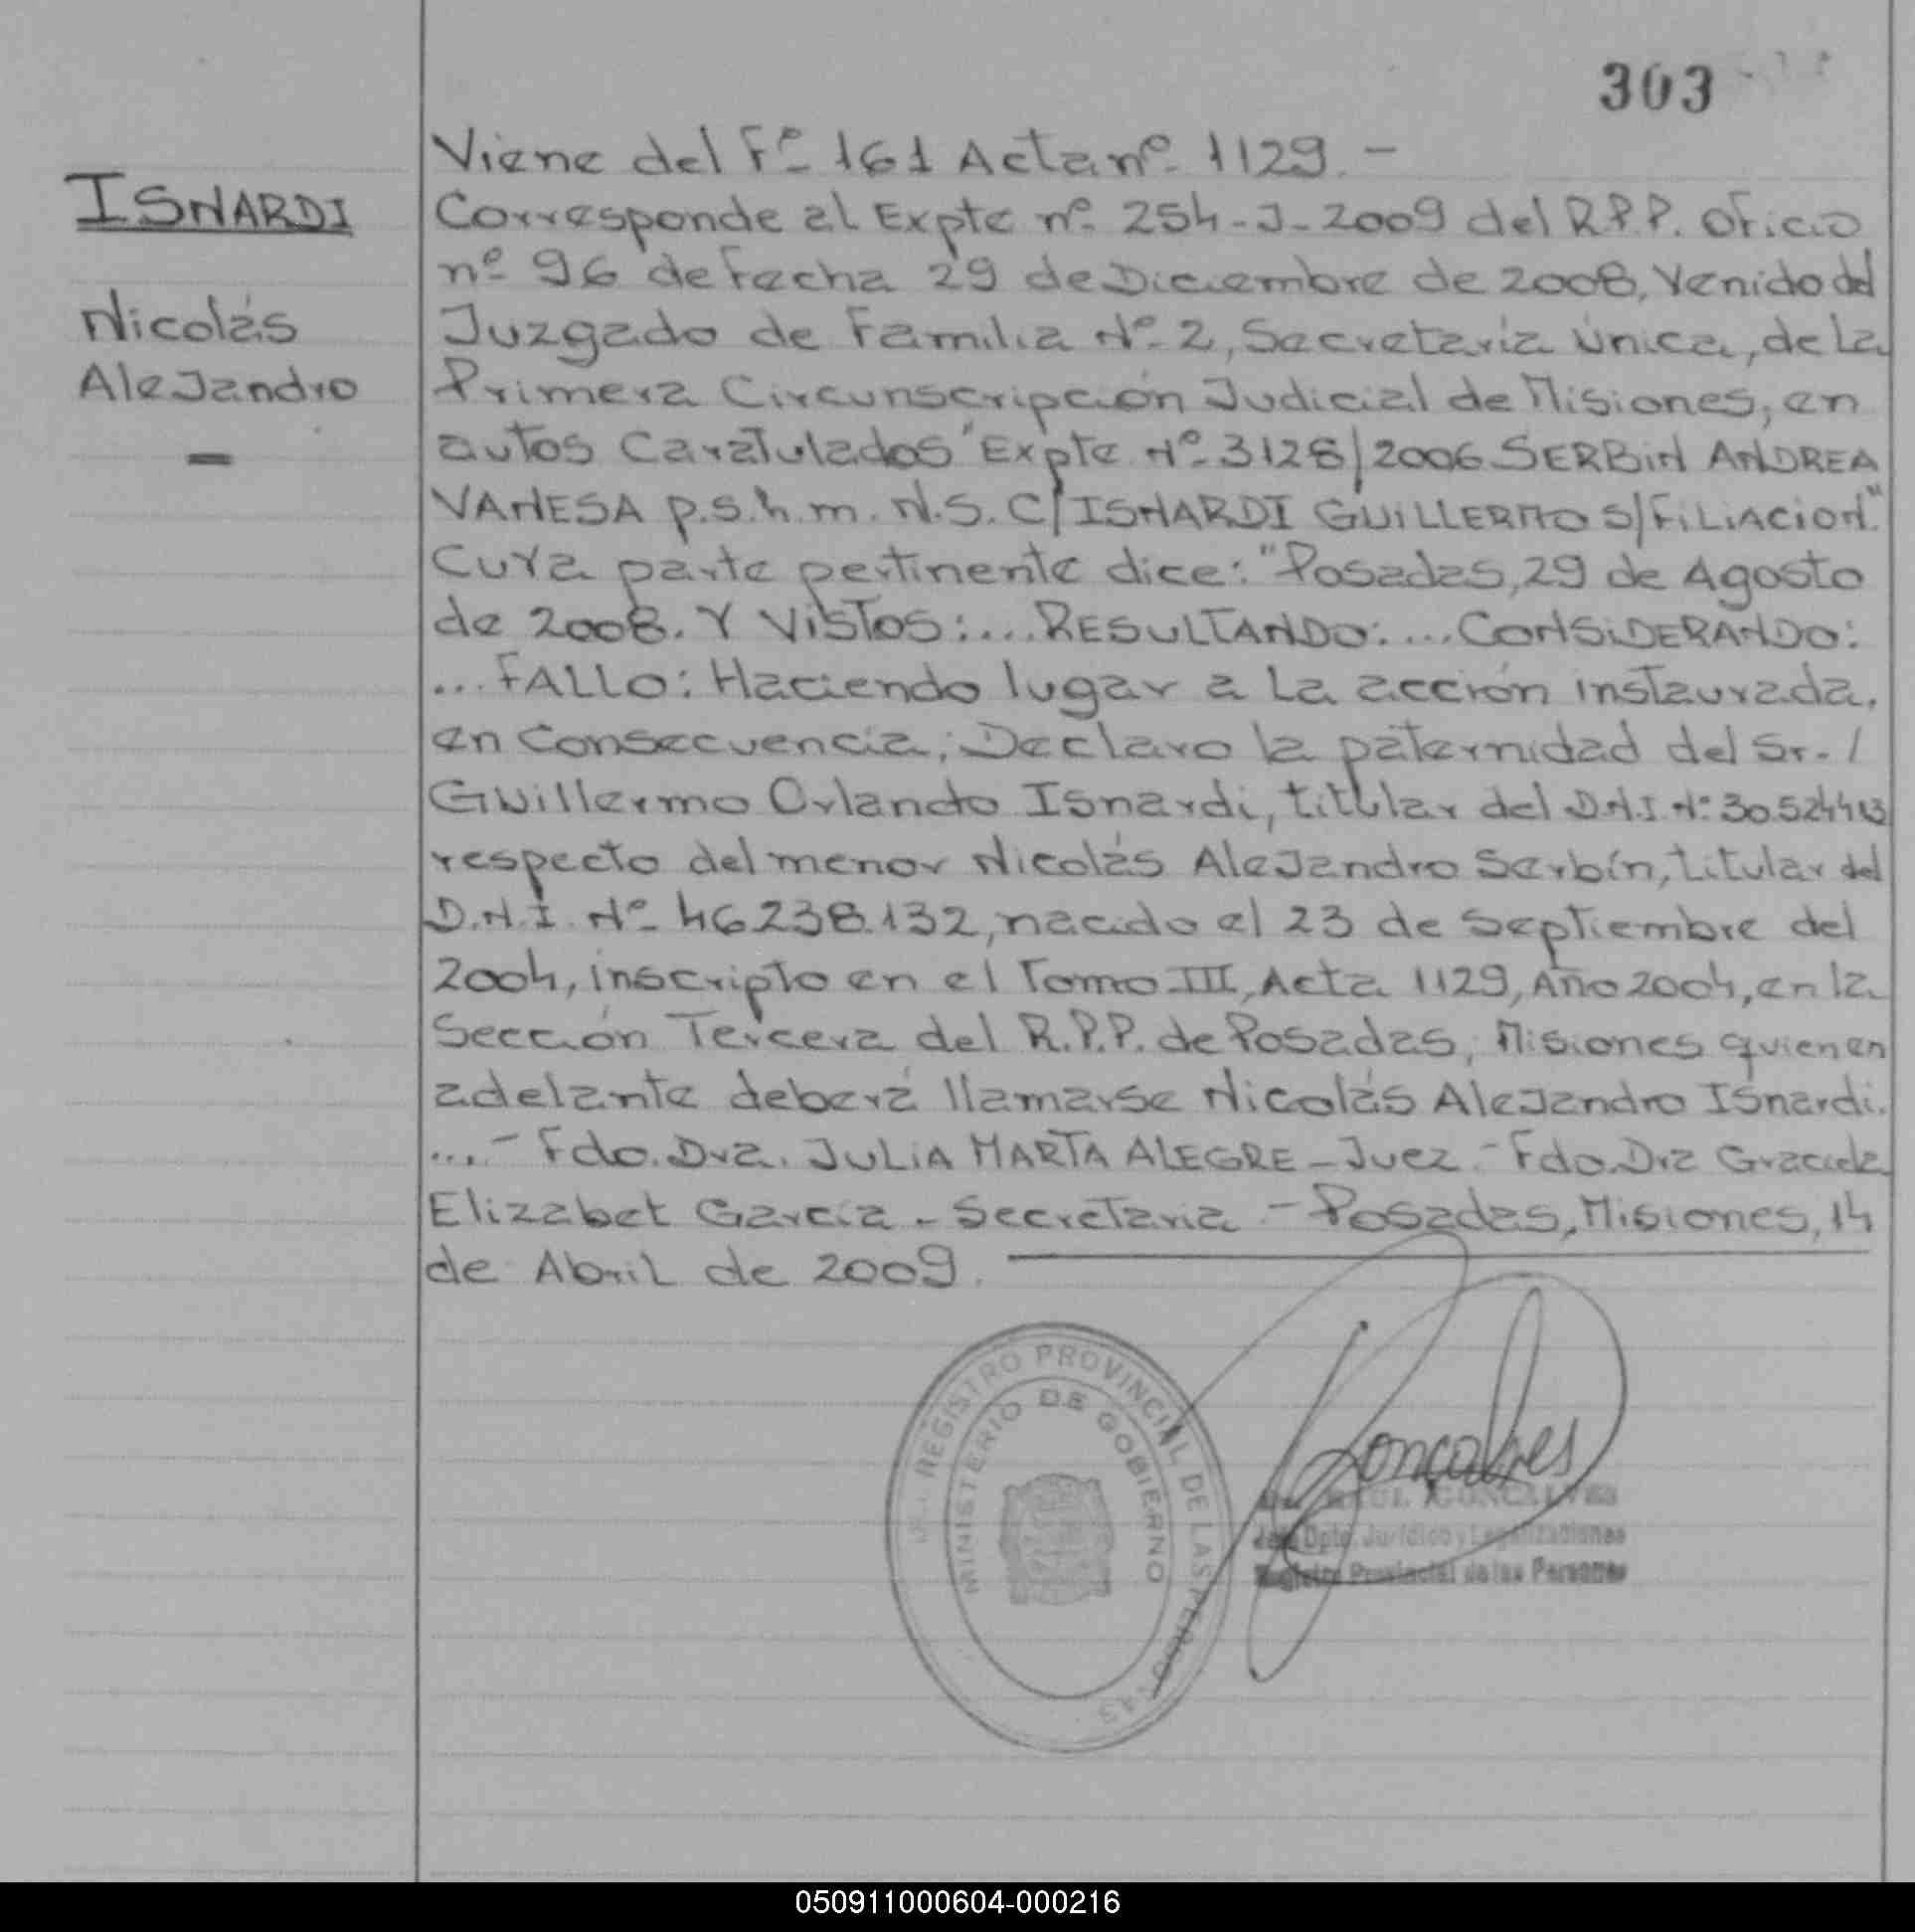 303
ISNARDI
Nicolás
Alejandro
Viene del Fº 161 Acta nº 1129.-
Corresponde al Expte nº 254-J-2009 del R.P.P. Oficio
nº 96 de fecha 29 de Diciembre de 2008, Venido del
Juzgado de Familia Nº 2, Secretaría Única, de La
Primera Circunscripción Judicial de Misiones, en
autos Caratulados "Expte Nº 3128/2006 SERBIN ANDREA
VANESA p.s.h.m. N.S. C/ ISNARDI GUILLERMO S/FILIACION"
Cuya parte pertinente dice: "Posadas, 29 de Agosto
de 2008. Y VISTOS:... RESULTANDO:... CONSIDERANDO:
...FALLO: Haciendo lugar a La acción instaurada,
en Consecuencia; Declaro la paternidad del Sr. /
Guillermo Orlando Isnardi, titular del D.N.I. Nº
respecto del menor Nicolás Alejandro Serbín, titular del
D.N.I. Nº 46.238.132, nacido el 23 de Septiembre del
2004, inscripto en el Tomo III, Acta 1129, Año 2004, en la
Sección Tercera del R.P.P. de Posadas, Misiones quien en
adelante deberá llamarse Nicolás Alejandro Isnardi.
....- Fdo. Dra. JULIA MARTA ALEGRE - Juez.- Fdo. Dra Graciela
Elizabet García - Secretaria.- Posadas, Misiones, 14
de Abril de 2009.
REGISTRO PROVINCIAL DE LAS PERSONAS
MINISTERIO DE GOBIERNO
Gonçalves
RAUL GONCALVES
Jefe Dpto. Jurídico y Legalizaciones
Registro Provincial de las Personas
050911000604-000216